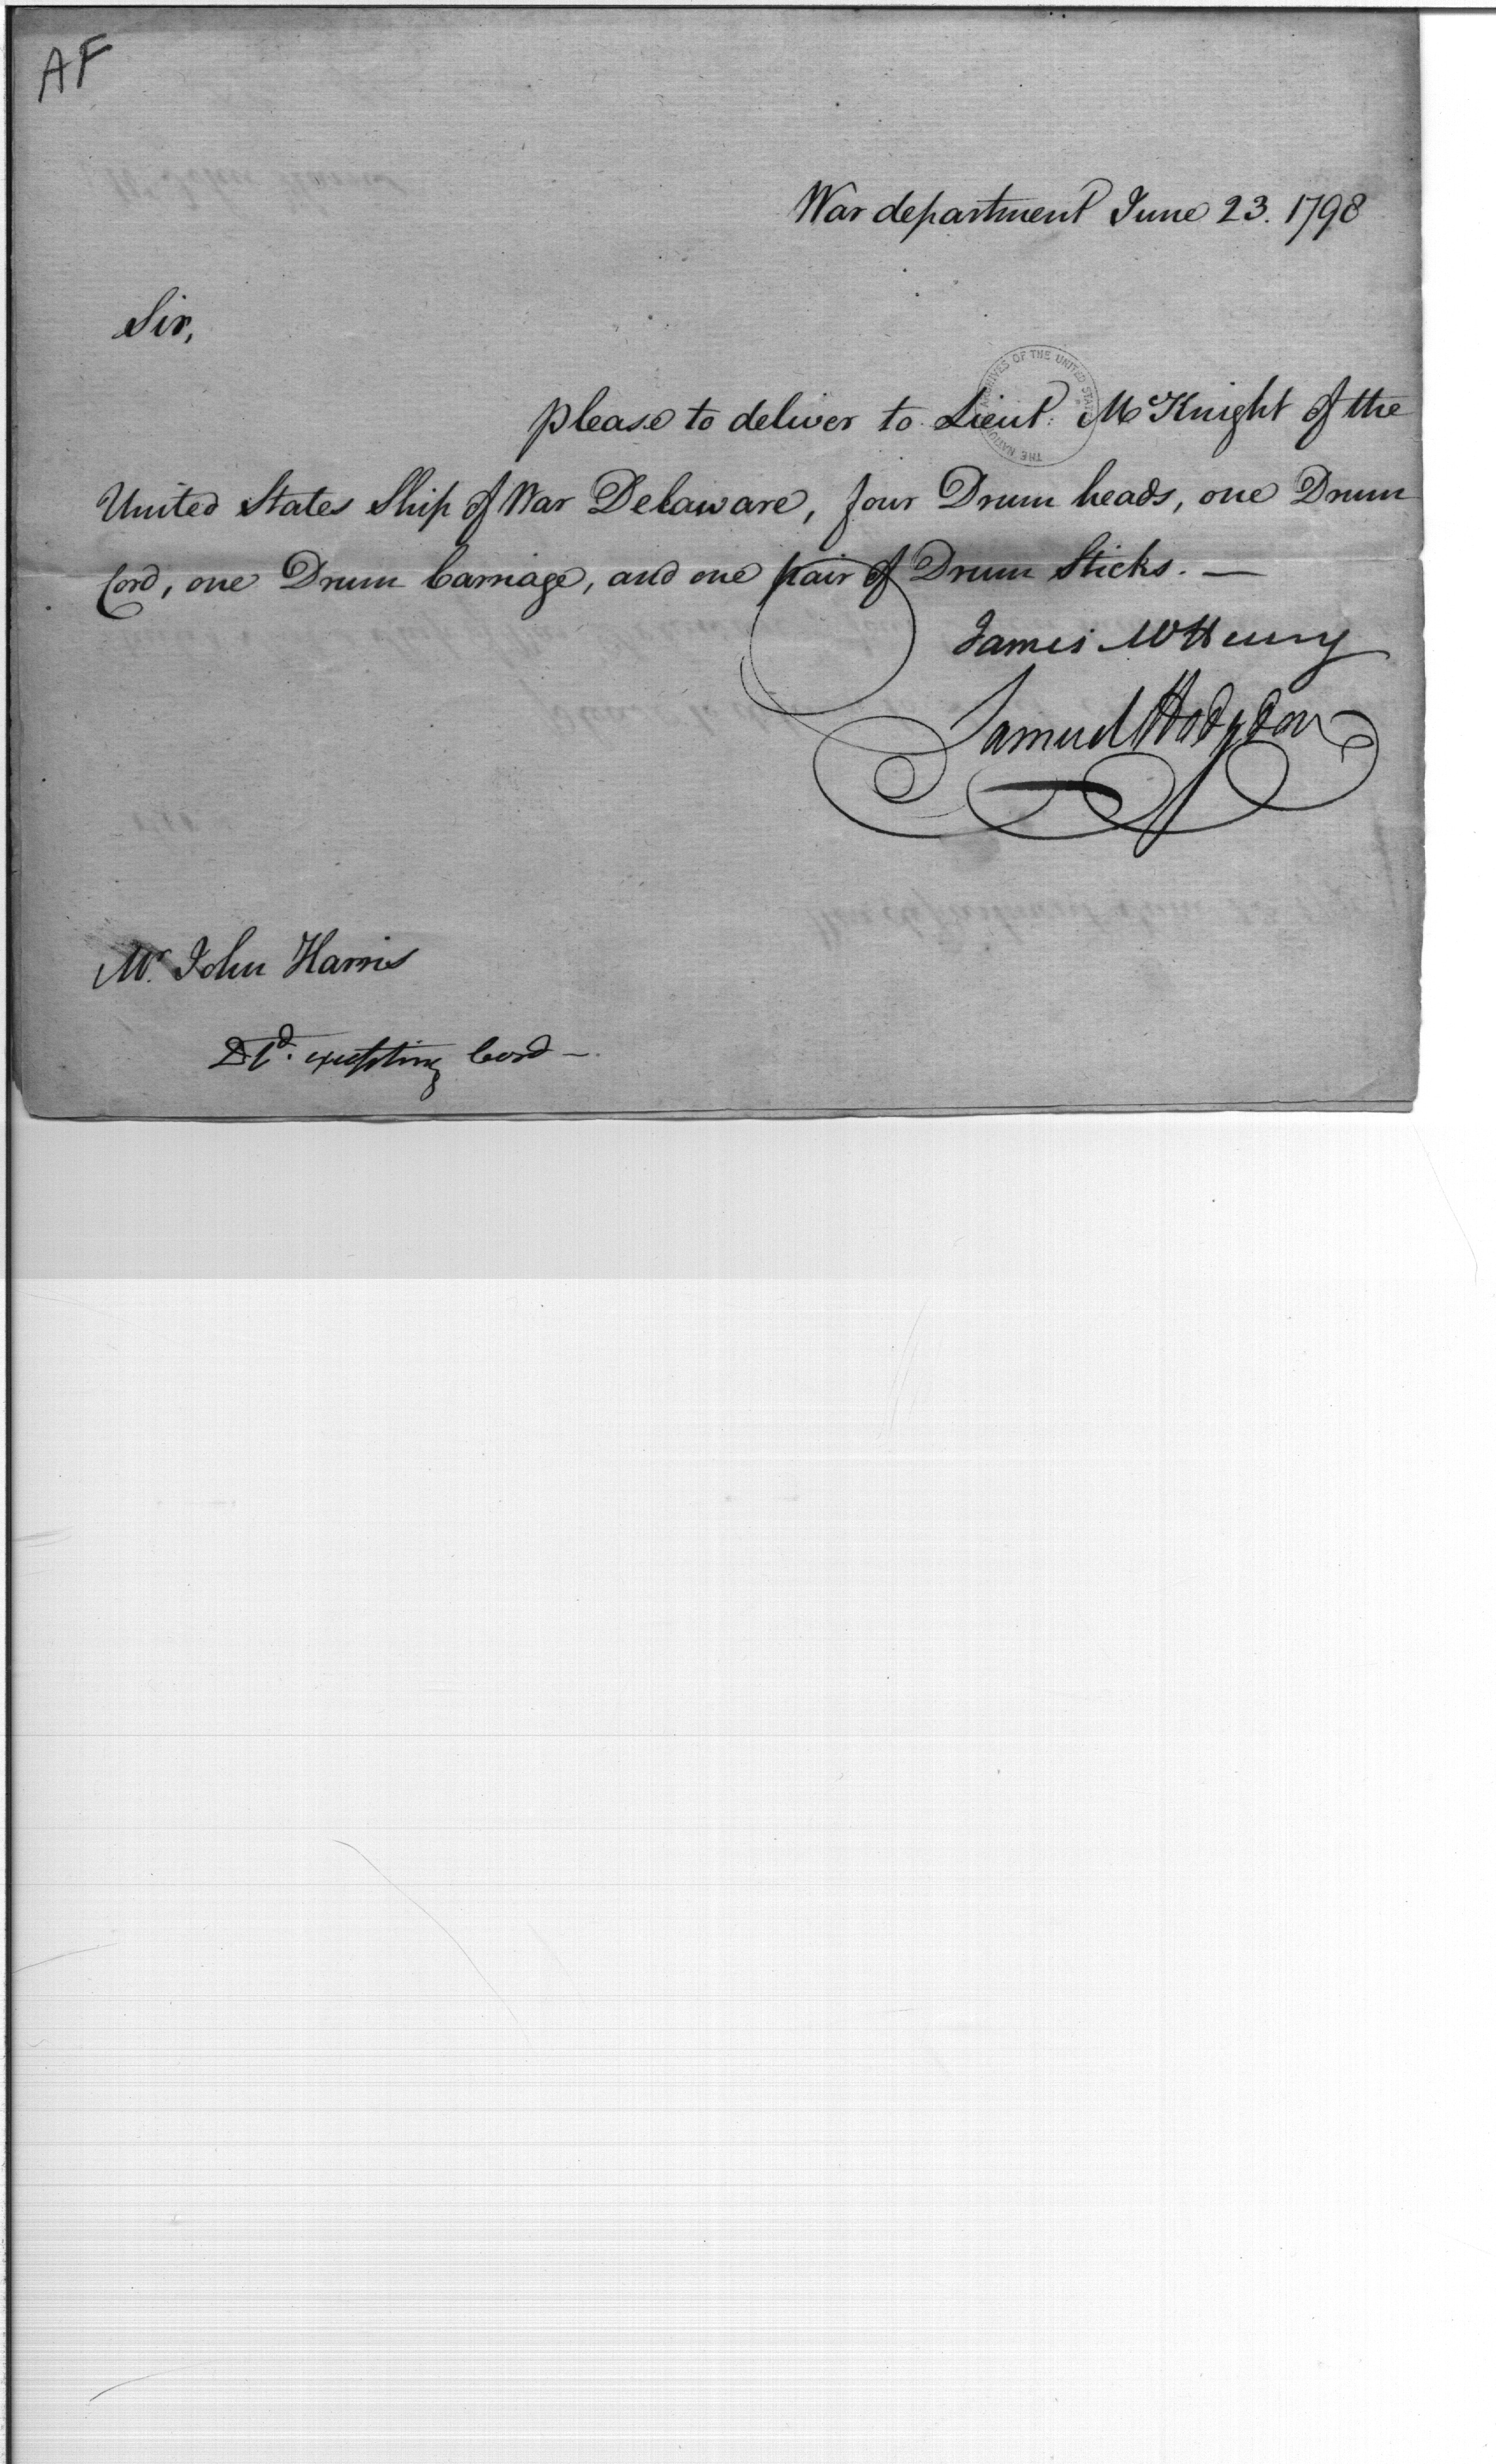 AF
War department June 23. 1798
Sir,
please to deliver to Lieut: McKnight of the
United States Ship of War Delaware, four Drum heads, one Drum
Cord, one Drum Carriage, and one pair of Drum Sticks. —
James McHenry
Samuel Hodgdon
Mr. John Harris
Dd. excepting Cord —
THE NATIONAL ARCHIVES OF THE UNITED STATES